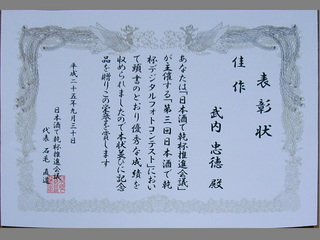 表彰状
佳作
武内 忠徳 殿
あなたは「日本酒で乾杯推進会議」
が主催する「第三回日本酒で乾
杯・デジタルフォトコンテスト」におい
て頭書のとおり優秀な成績を
収められましたので本状並びに記念
品を贈りこの栄誉を賞します
平成二十五年九月三十日
日本酒で乾杯推進会議
代表 石毛 直道